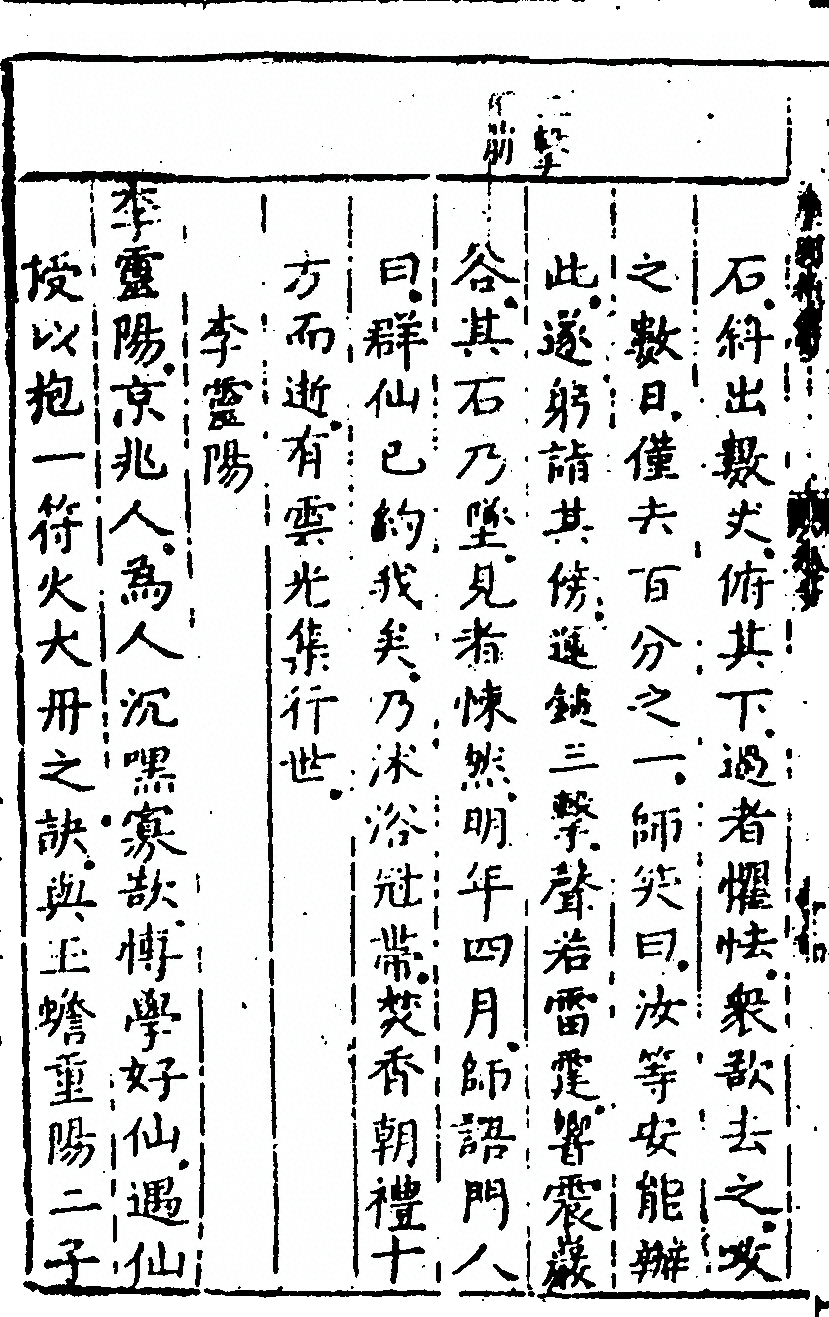 擊
崩
石。斜出數丈。俯其下。過者懼怯。衆欲去之。攻
之數日。僅去百分之一。師笑曰。汝等安能辦
此。遂躬詣其傍。運鎚三擊。聲若雷霆。響震巖
谷。其石乃墜。見者悚然。明年四月。師語門人
曰。群仙已約我矣。乃沐浴冠帶。焚香朝禮十
方而逝。有雲光集行世。
李靈陽
李靈陽。京兆人。為人沉嘿寡欲。博學好仙。遇仙
授以抱一符火大丹之訣。與玉蟾重陽二子